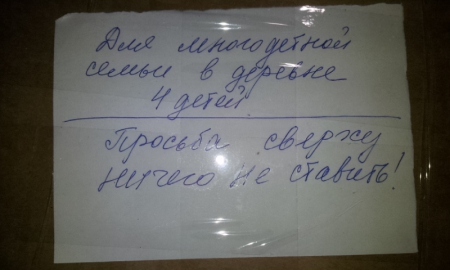 Для многодетной
семьи в деревне
4 детей
Просьба сверху
ничего не ставить!